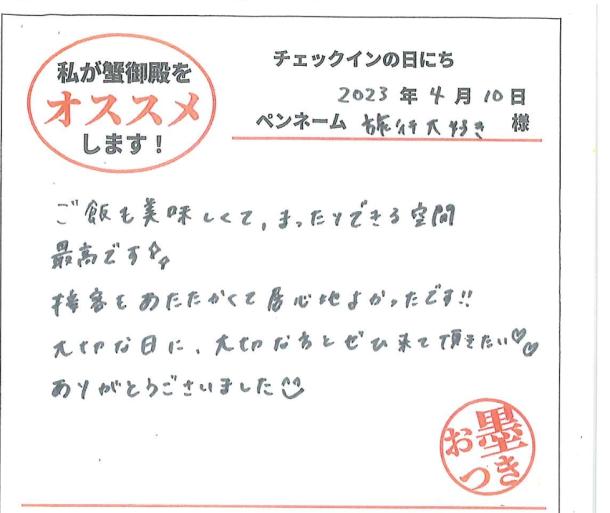 私が蟹御殿を
オススメ
します！
チェックインの日にち
2023 年 4 月 10 日
ペンネーム 旅行大好き 様
ご飯も美味しくて、まったりできる空間
最高です
接客もあたたかくて居心地よかったです!!
大切な日に、大切な方とぜひ来て頂きたい♡♡
ありがとうございました
お墨
つき